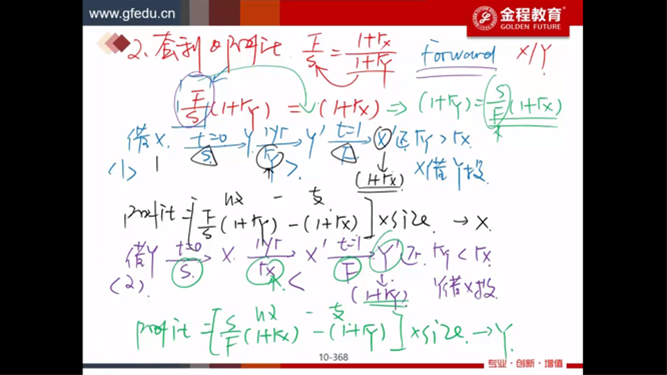 www.gfedu.cn
金程教育
GOLDEN FUTURE
2. 套利 profit F/S = (1+rx)/(1+ry) Forward X/Y
F/S (1+ry) = (1+rx) ⇒ (1+ry) = S/F (1+rx)
借X t=0 S Y 1yr ry Y' t=1 F X' 还 ry > rx
(1) 1 > X借Y投
(1+rx)
收 - 支
profit = [F/S (1+ry) - (1+rx)] × size → X.
借Y t=0 S X 1yr rx X' t=1 F Y' 还 ry < rx
(2) < Y借X投
(1+ry)
收 - 支
profit = [S/F (1+rx) - (1+ry)] × size → Y.
10-368
专业·创新·增值